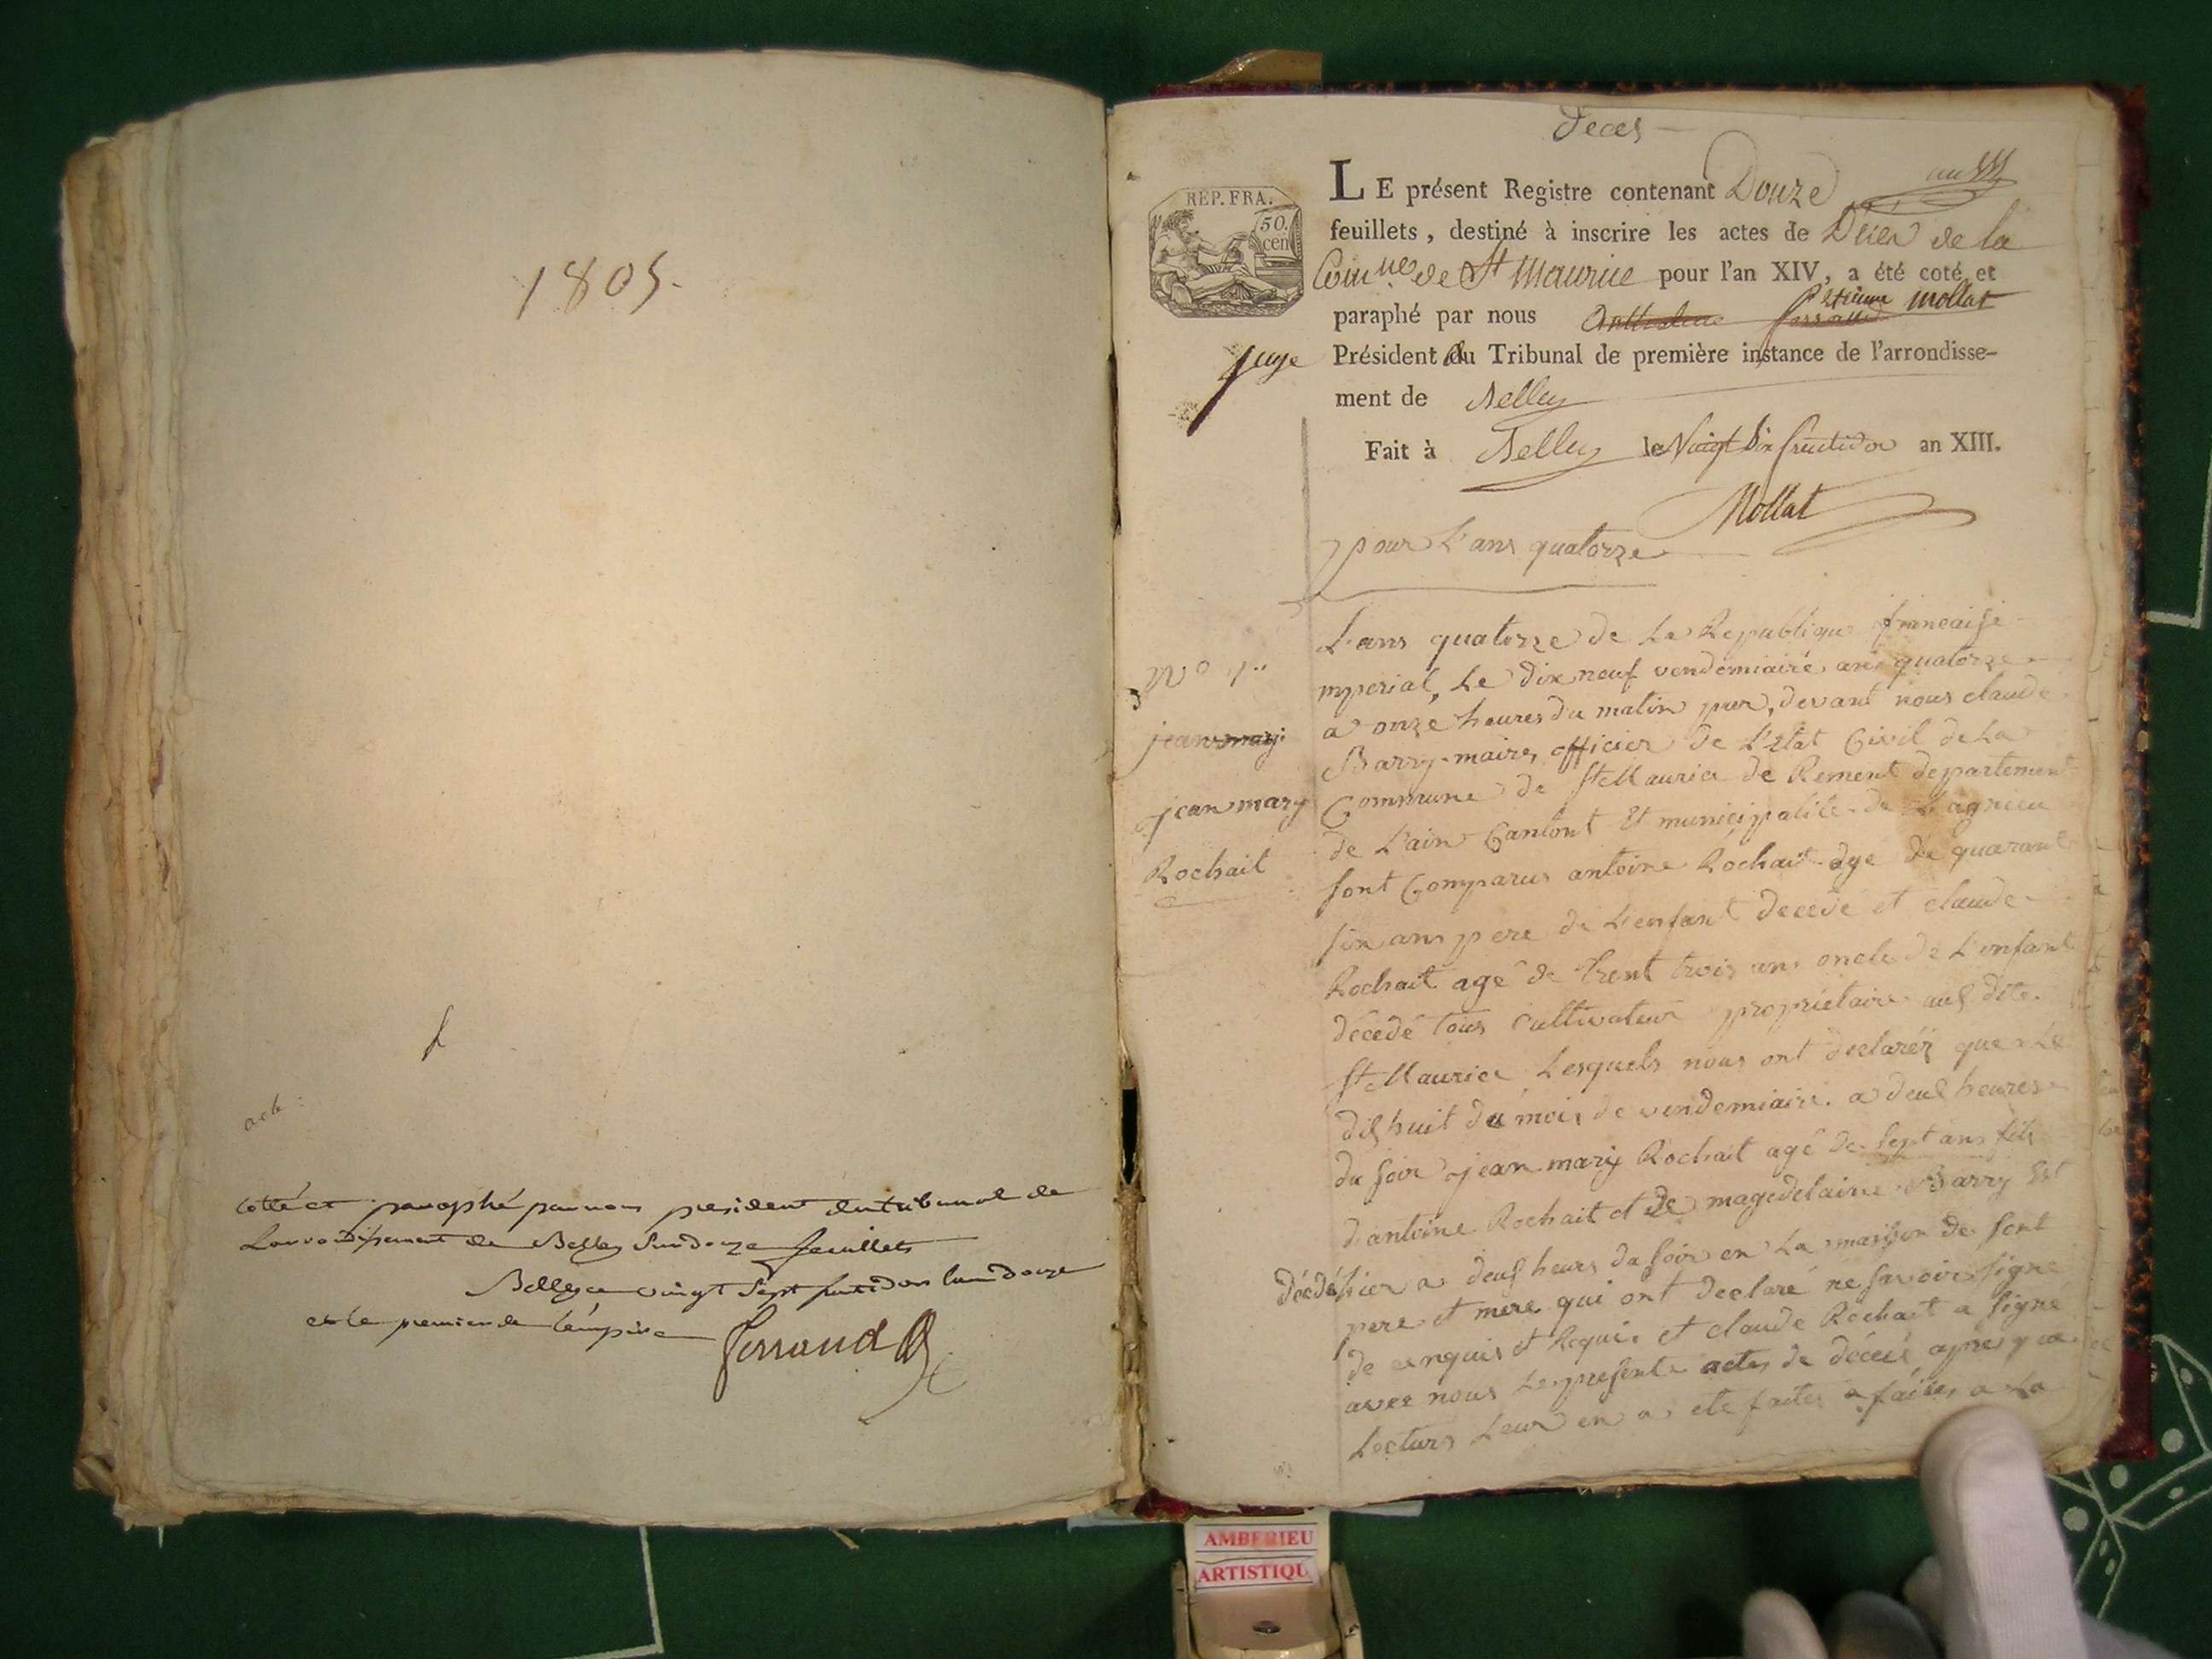 1805.
cotté et paraphé par nous president du tribunal de
L'arrondissement de Belley sur douze feuillets
Belley ce vingt sept fructidor l'an douze
et le premier de l'empire Ferrand
Deces
REP. FRA.
50.
cen
LE présent Registre contenant Douze
feuillets, destiné à inscrire les actes de Décès de la
Comne de St Maurice pour l'an XIV, a été coté et
paraphé par nous Etienne Mollat
juge Président du Tribunal de première instance de l'arrondisse-
ment de Belley
Fait à Belley le Vingt Six fructidor an XIII.
Mollat
pour L'ans quatorze
No 1..
jean mary
jean mary
Rochait
L'ans quatorze de La Republique francaise
mperial, Le dix neuf vendémiairé an quatorze
a onze heures du matin par, devant nous claude
Barry maire, officier de L'Etat Civil de La
Commune de St Maurice de Rement departement
de L'ain Cantont Et municipalité de Lagnieu
sont Comparus antoine Rochait age de quarant
six ans pere de L'enfant décédé et claude
Rochait agé de trent trois ans oncle de L'enfant
décédé tous Cultivateur propriétaire aus dite
St Maurice Lesquels nous ont declaréz que Le
dix huit du mois de vendemiaire a deus heures
du soir jean mary Rochait agé de sept ans fils
d'antoine Rochait et de magedelaine Barry Est
décédé hier a deus heurs du soir en La maison de sont
pere et mere qui ont declaré ne savoir signe
de enquis et Requis et claude Rochait a signe
avec nous Le presente actes de décés apres que
Lecturs Leur en a ete faites a faires a La
AMBERIEU
ARTISTIQU